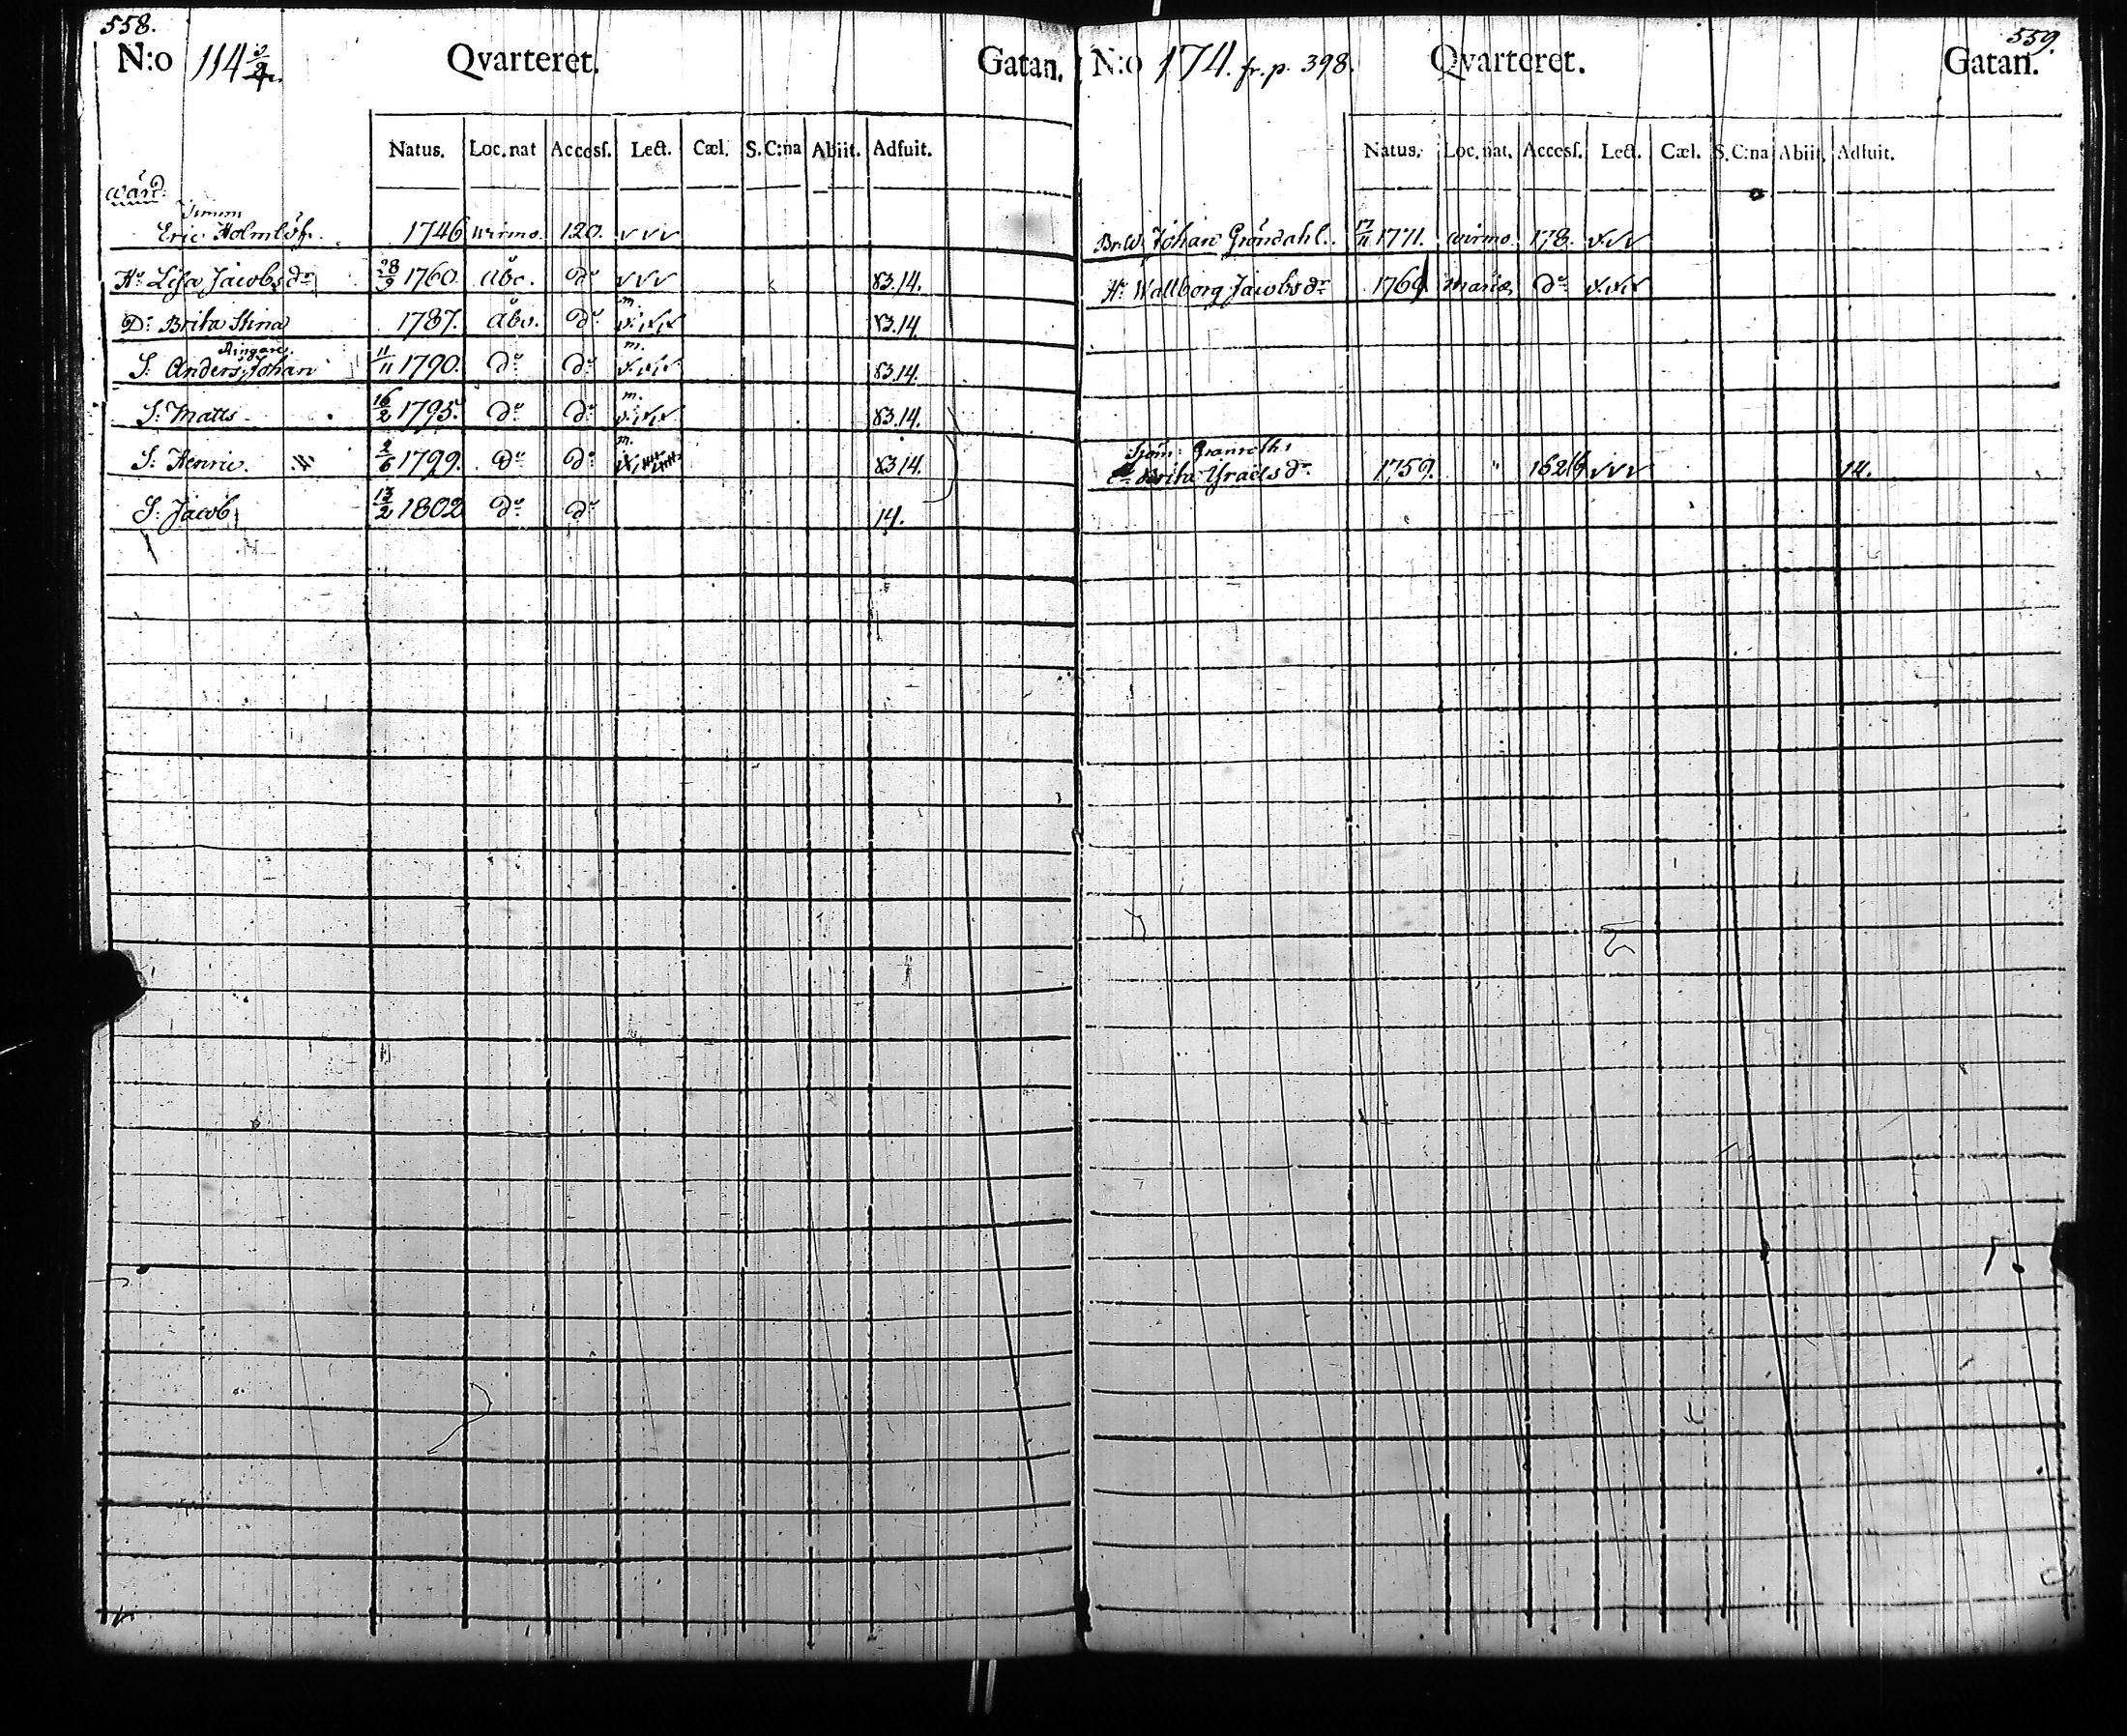 558.
N:o 114 3/4 Qvarteret. Gatan.
Natus. Loc. nat Accesſ. Lect. Cæl. S. C:na Abiit. Adfuit.
Wård:
Timm
Eric Holmlöf. 1746 Wirmo. 120. v v v
Hu Lisa Jacobs dr 28/9 1760. Åbo. do v v v 83.14.
Dr Brita Stina 1787. Åbo. do m. v. v. v 83.14.
Ringare.
S: Anders Johan 11/11 1790. do do m. v. v. v 83.14.
S: Matts 16/2 1795. do do m. v. v. v 83.14.
S: Henric. 2/6 1799. do do m. 83.14.
S: Jacob 13/2 1802 do do 14.
559.
N:o 174. fr. p. 398. Qvarteret. Gatan.
Natus. Loc. nat. Accesſ. Lect. Cæl. S. C:na Abiit. Adfuit.
Br.W. Johan Gröndahl. 17/11 1771. Wirmo. 178. v. v. v
Hu Wallborg Jacobs dr 1769 Mariæ do v. v. v
Sjöm: Granroths
Brita Israels dr 1759. " 162 v v v 14.